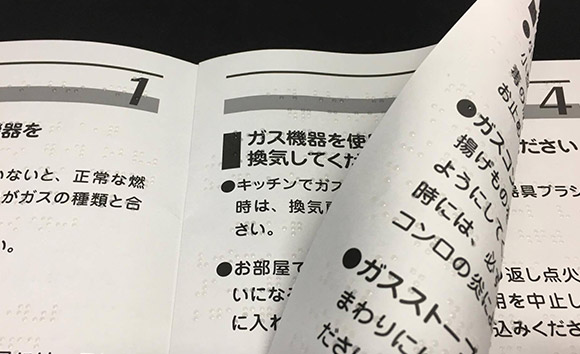 1
機器を
いないと、正常な燃
がガスの種類と合
い。
ガス機器を使
換気してくだ
●キッチンでガス
時は、換気
さい。
●お部屋で
いにな
に入れ
お止
●ガスコン
揚げもの
ようにして
時には、必
コンロの炎に
●ガスストーブ
まわりに
ださい
4
ださい
器具ブラシ
返し点火
用を中止し
込みくださ